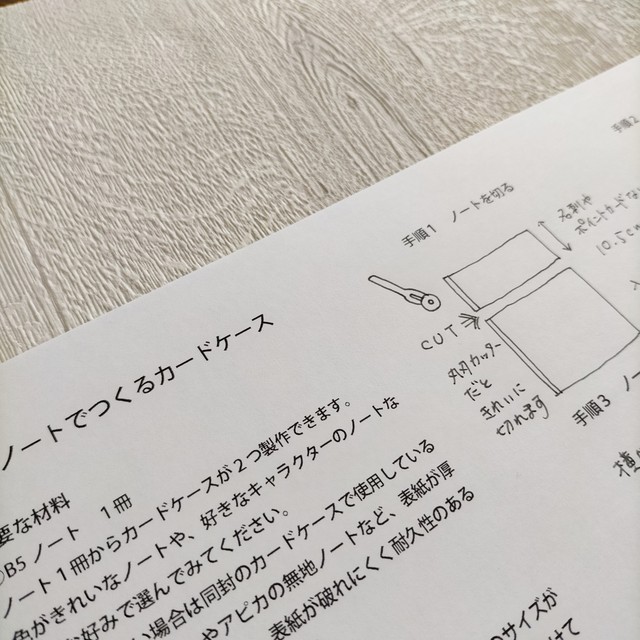 ノートでつくるカードケース
要な材料
B5 ノート 1冊
ノート1冊からカードケースが2つ製作できます。
色がきれいなノートや、好きなキャラクターのノートな
お好みで選んでみてください。
い場合は同封のカードケースで使用している
やアピカの無地ノートなど、表紙が厚
表紙が破れにくく耐久性のある
のサイズが
けて
手順1 ノートを切る
名刺や
10.5cm
CUT
丸刃カッター
だと
きれいに
切れます
手順2
手順3 ノー